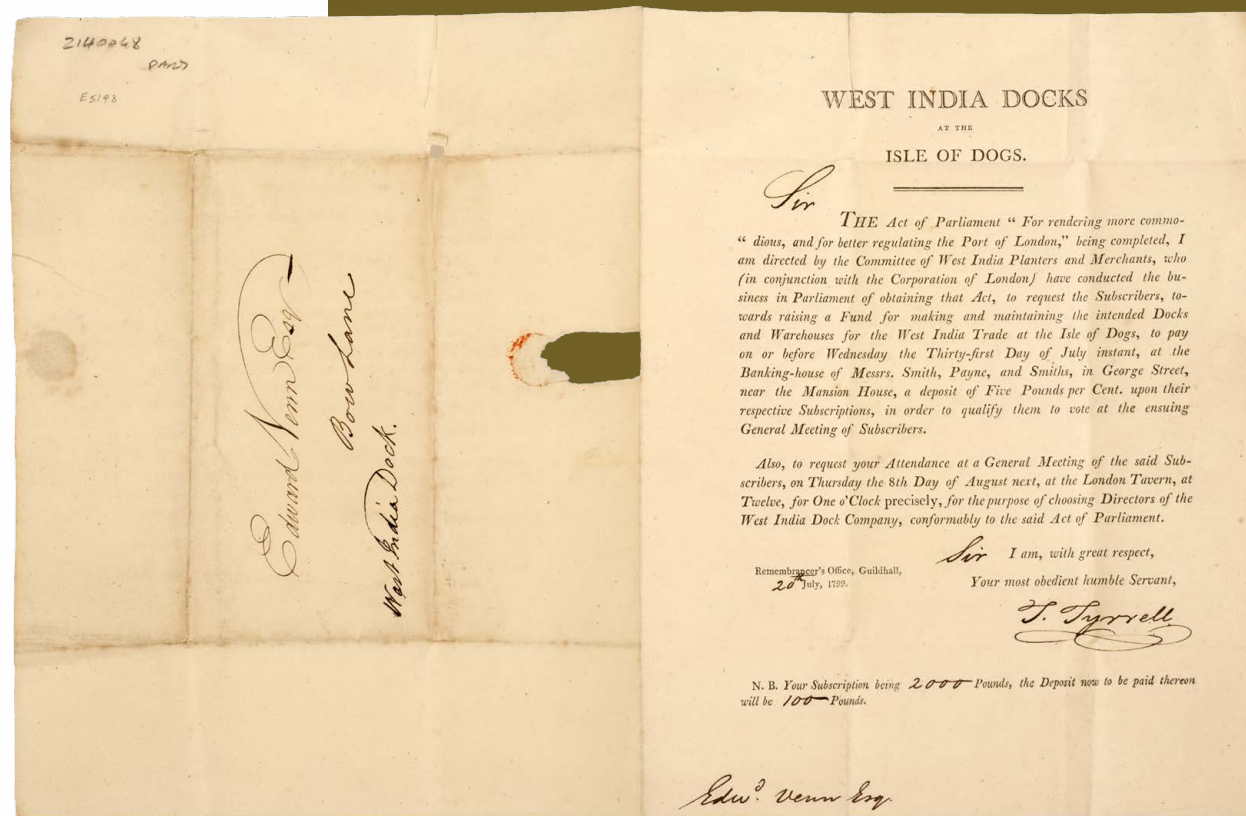 2140048
E5193
Edward Venn Esqr
Bow Lane
West India Dock.
WEST INDIA DOCKS
AT THE
ISLE OF DOGS.
Sir
THE Act of Parliament “ For rendering more commo-
“ dious, and for better regulating the Port of London,” being completed, I
am directed by the Committee of West India Planters and Merchants, who
(in conjunction with the Corporation of London) have conducted the bu-
siness in Parliament of obtaining that Act, to request the Subscribers, to-
wards raising a Fund for making and maintaining the intended Docks
and Warehouses for the West India Trade at the Isle of Dogs, to pay
on or before Wednesday the Thirty-first Day of July instant, at the
Banking-house of Messrs. Smith, Payne, and Smiths, in George Street,
near the Mansion House, a deposit of Five Pounds per Cent. upon their
respective Subscriptions, in order to qualify them to vote at the ensuing
General Meeting of Subscribers.
Also, to request your Attendance at a General Meeting of the said Sub-
scribers, on Thursday the 8th Day of August next, at the London Tavern, at
Twelve, for One o'Clock precisely, for the purpose of choosing Directors of the
West India Dock Company, conformably to the said Act of Parliament.
Sir I am, with great respect,
Remembrancer's Office, Guildhall,
20th July, 1799.
Your most obedient humble Servant,
T. Tyrrell
N. B. Your Subscription being 2000 Pounds, the Deposit now to be paid thereon
will be 100 Pounds.
Edwd. Venn Esq.